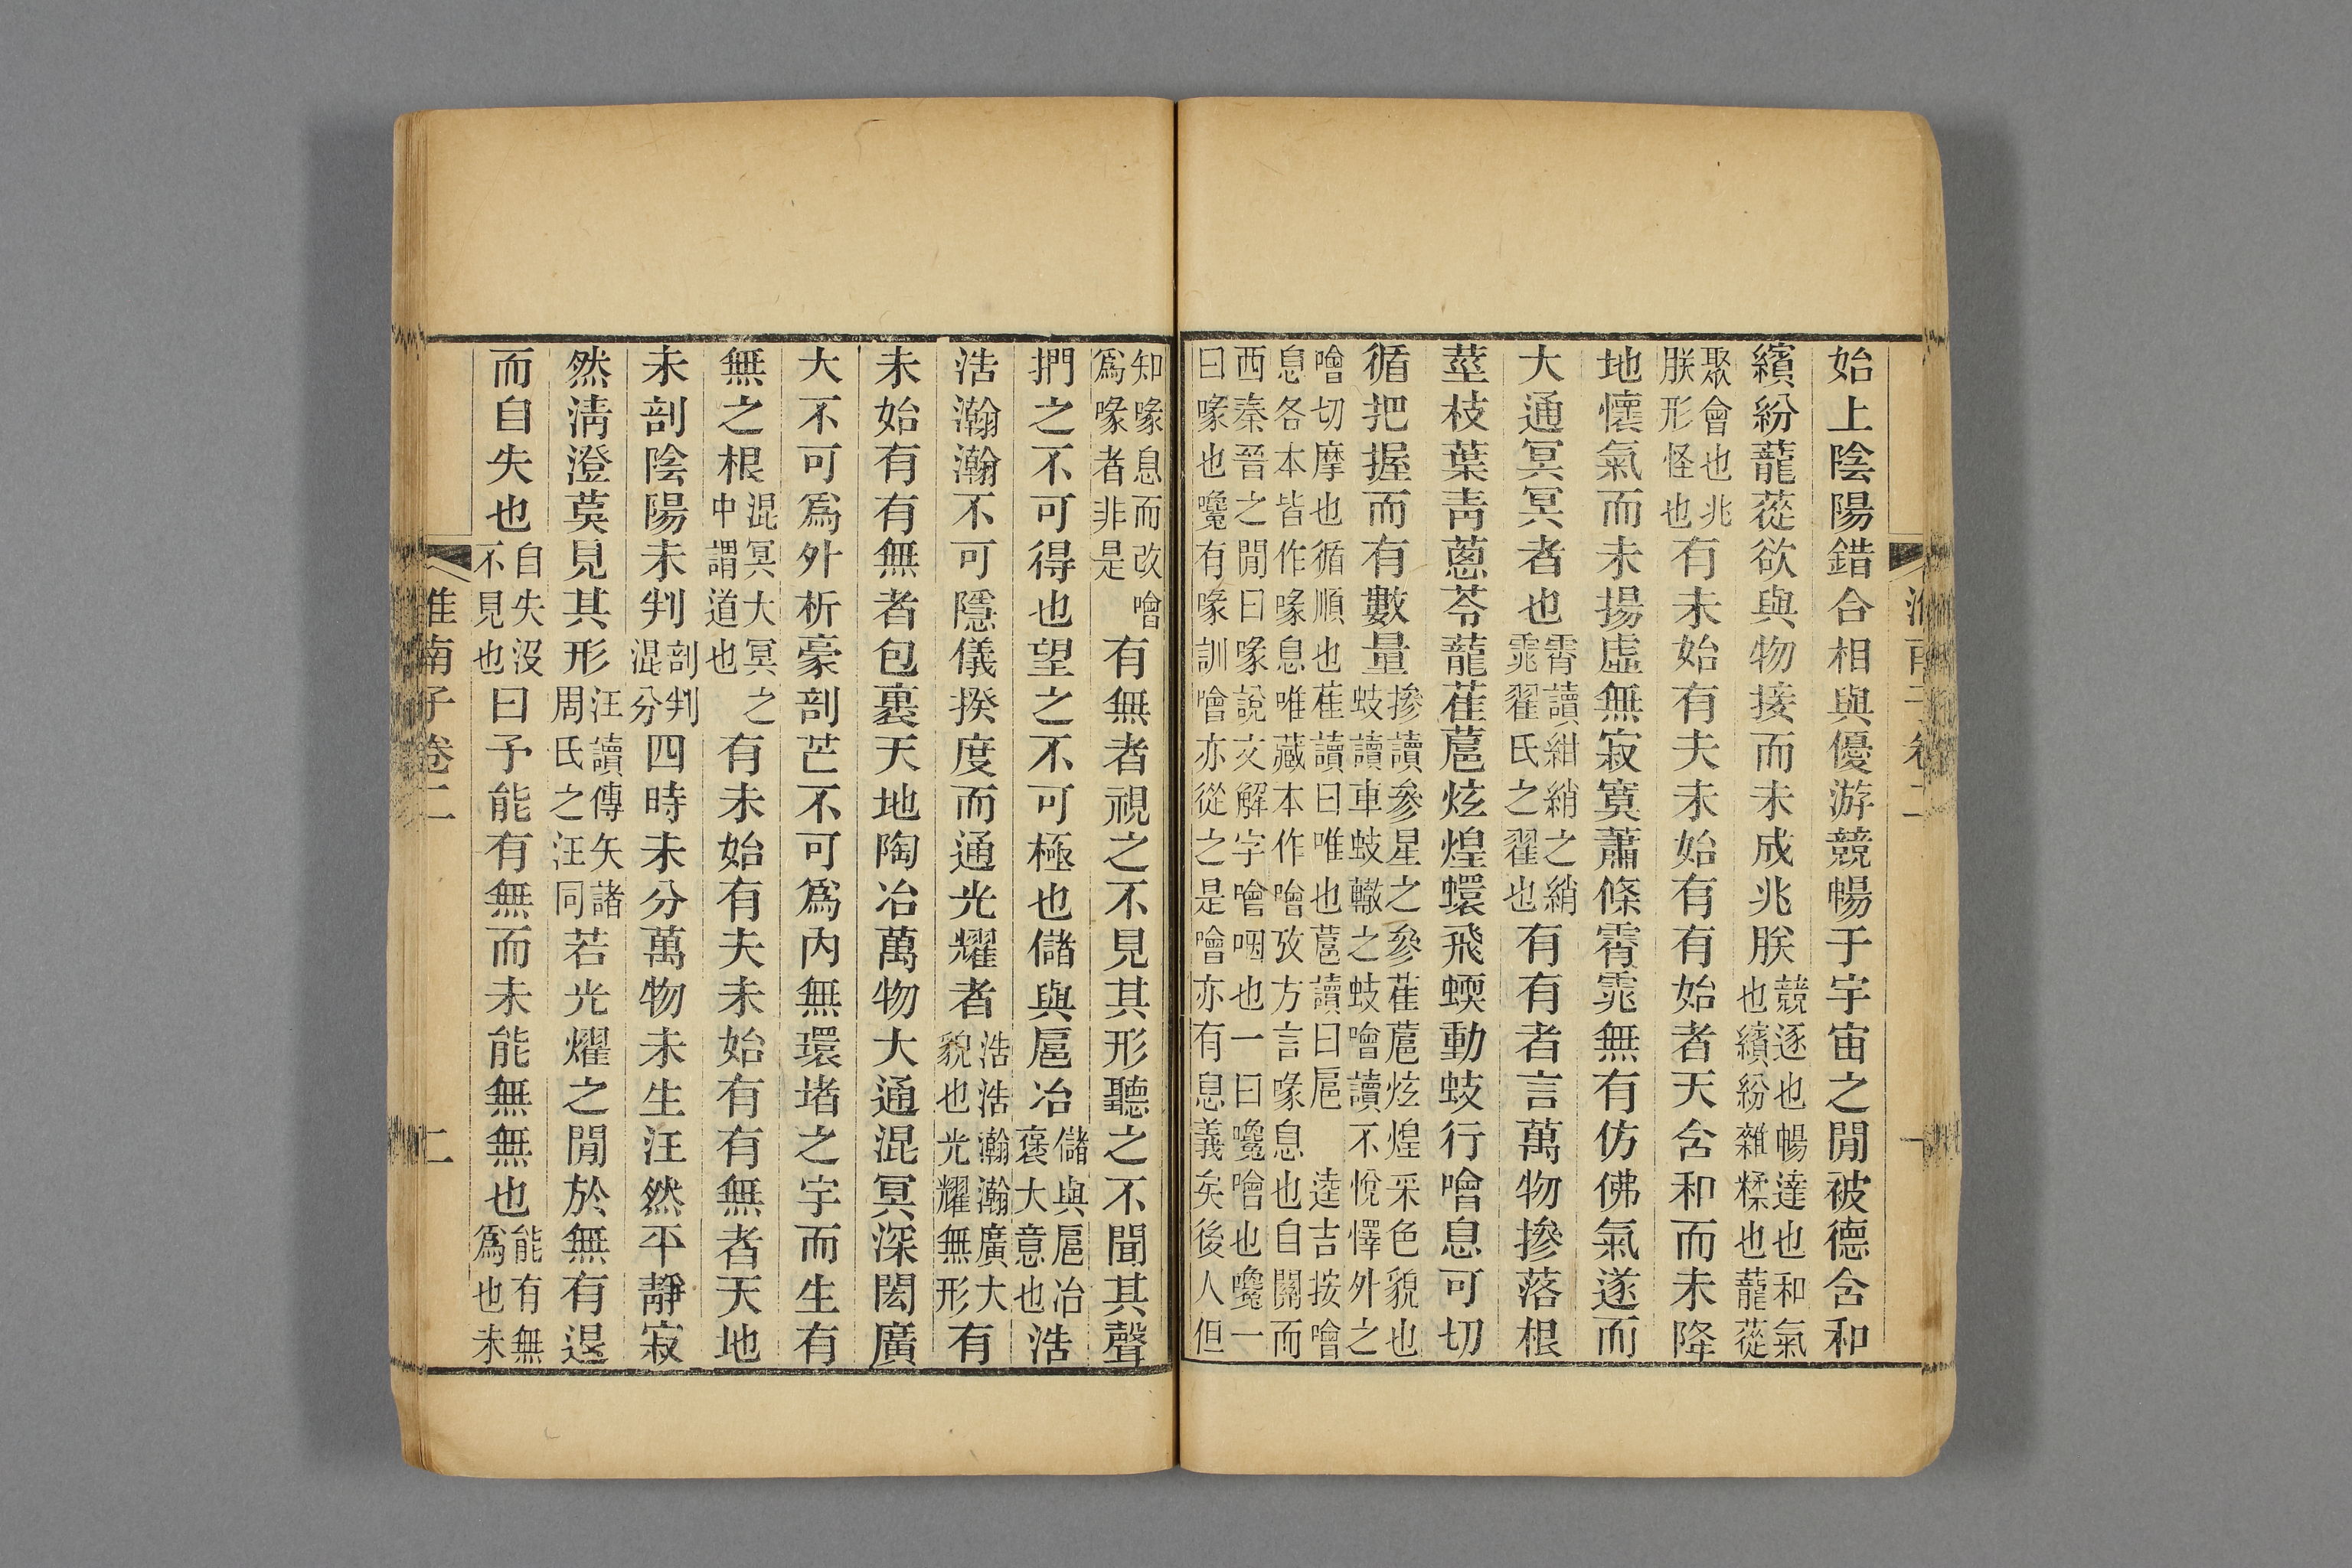 始上陰陽錯合相與優游競暢于宇宙之閒被德含和
繽紛蘢蓯欲與物接而未成兆朕競逐也暢達也和氣也繽紛雜糅也蘢蓯
聚會也兆朕形怪也有未始有夫未始有有始者天含和而未降
地懷氣而未揚虛無寂寞蕭條霄雿無有仿佛氣遂而
大通冥冥者也霄讀紺綃之綃雿翟氏之翟也有有者言萬物摻落根
莖枝葉青蔥苓蘢萑蔰炫煌蠉飛蝡動蚑行噲息可切
循把握而有數量摻讀參星之參萑蔰炫煌采色貌也蚑讀車蚑轍之蚑噲讀不悅懌外之
噲切摩也循順也萑讀曰唯也蔰讀曰扈　逵吉按噲息各本皆作喙息唯藏本作噲攷方言喙息也自關而
西秦晉之閒曰喙說文解字噲咽也一曰嚵噲也嚵一曰喙也嚵有喙訓噲亦從之是噲亦有息義矣後人但
知喙息而改噲爲喙者非是有無者視之不見其形聽之不聞其聲
捫之不可得也望之不可極也儲與扈冶儲與扈冶褒大意也浩
浩瀚瀚不可隱儀揆度而通光耀者浩浩瀚瀚廣大貌也光耀無形有
未始有有無者包裹天地陶冶萬物大通混冥深閎廣
大不可爲外析豪剖芒不可爲內無環堵之宇而生有
無之根混冥大冥之中謂道也有未始有夫未始有有無者天地
未剖陰陽未判剖判混分四時未分萬物未生汪然平靜寂
然淸澄莫見其形汪讀傳矢諸周氏之汪同若光耀之閒於無有退
而自失也自失沒不見也曰予能有無而未能無無也能有無爲也未
淮南子卷二　二